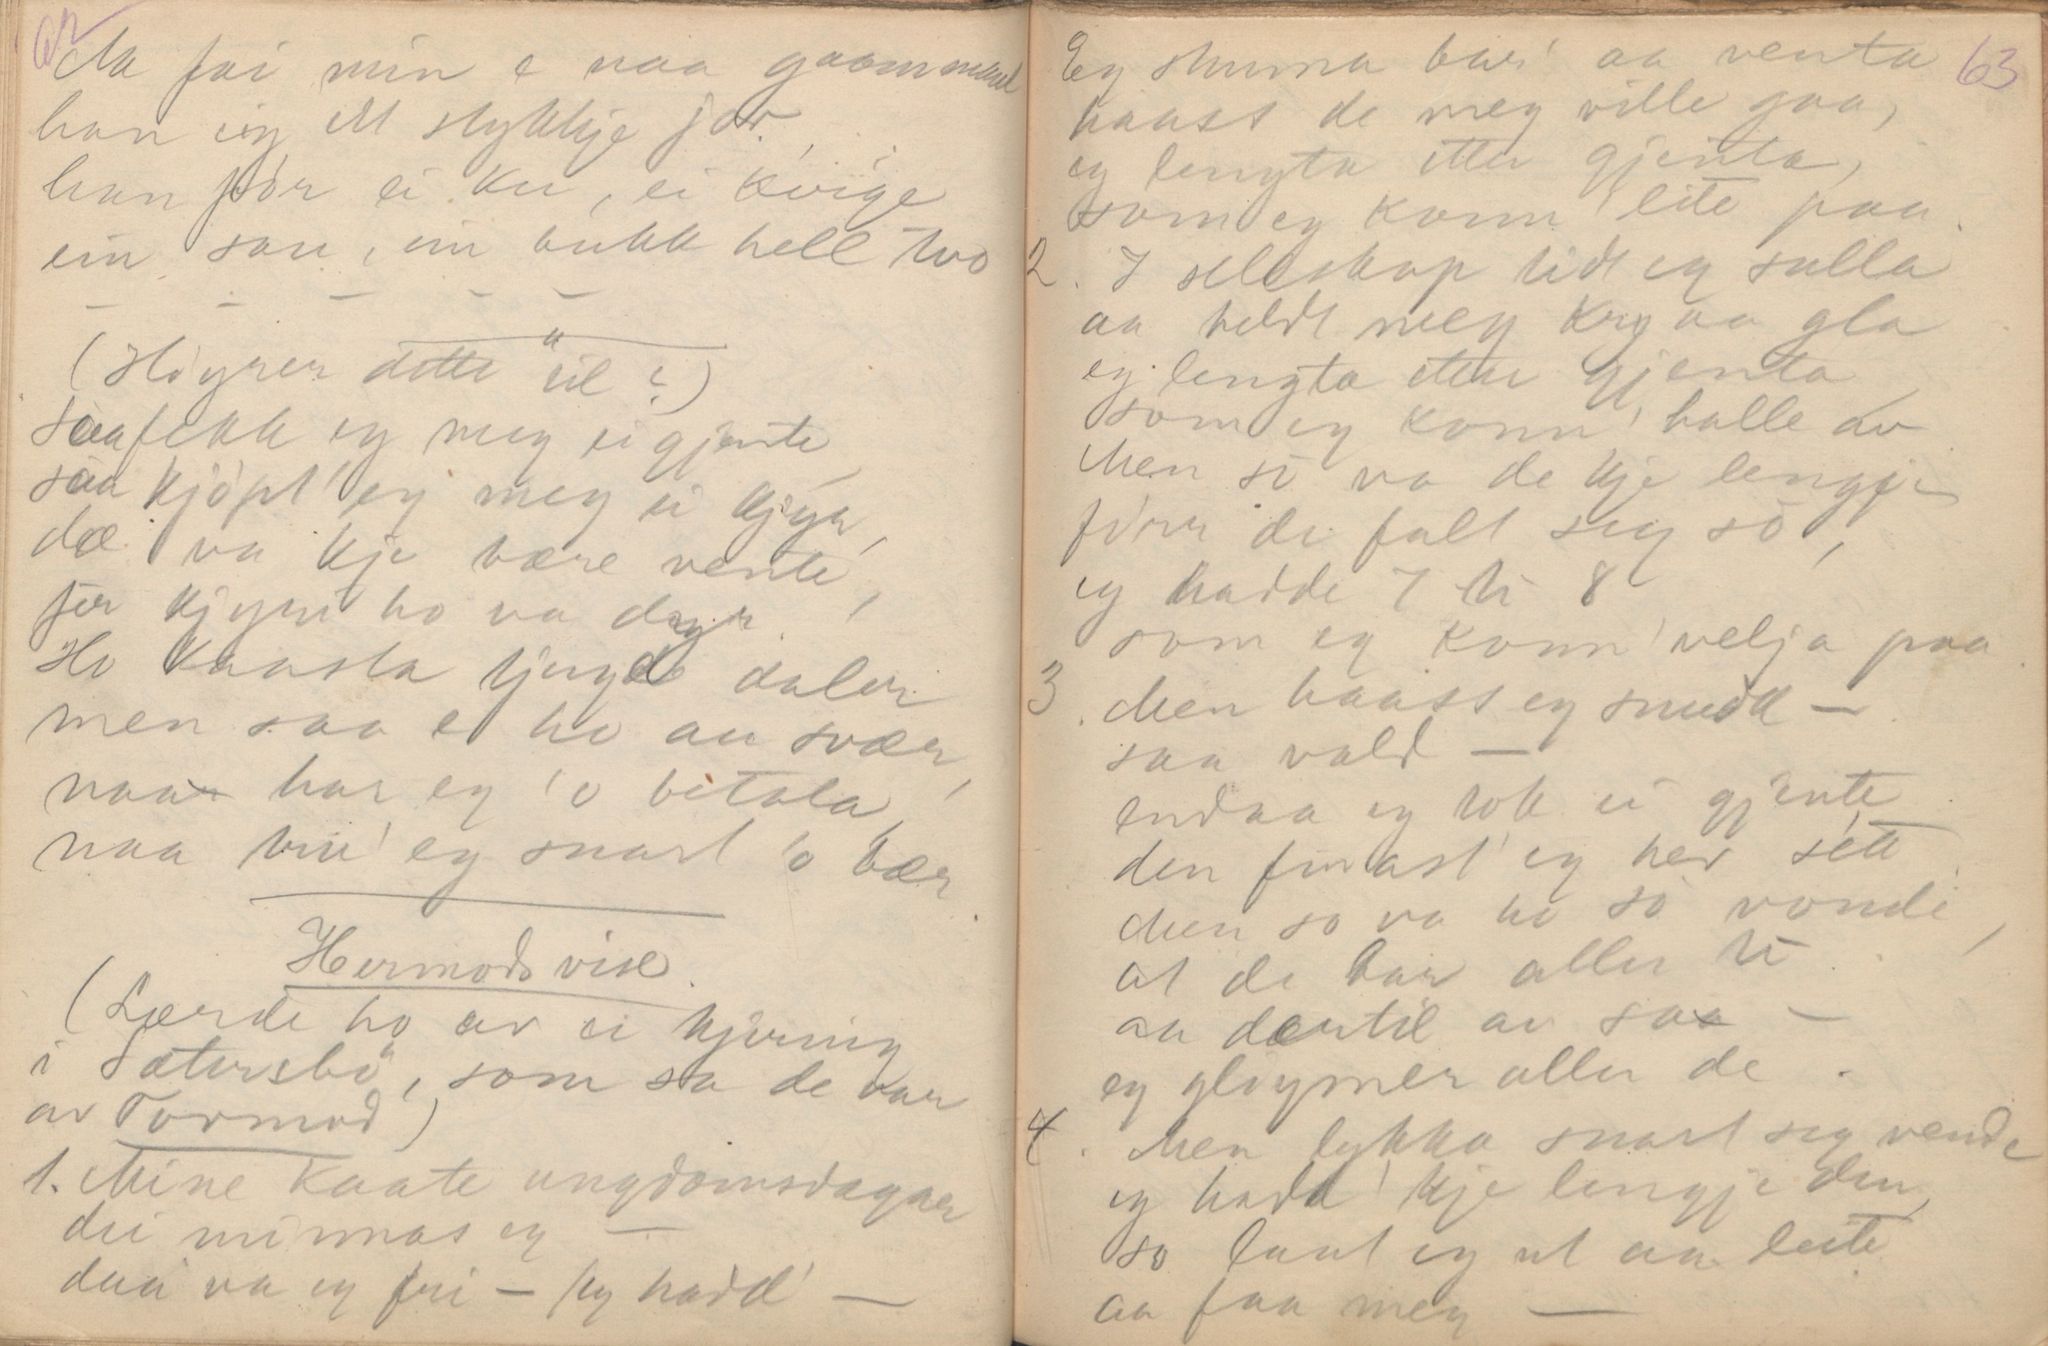 62
Aa fai min e naa gaammaal
han eig ett stykkje jor,
han föör ei ku, ei kvige
ein sau, ein bukk hell two
(Höyrer dette til?)
saa fekk eg meg ei gjente
saa kjöpt' eg meg ei kjyr,
dæ va kje være vente,
för kjyri ho va dyr.
Ho kaasta tjuge daler
men saa e ho au svær,
naa har eg 'o betala,
naa bin' eg snart 'o bær
Hermods vise.
(Lærde ho av ei kjering
i Sætersbö, som sa de var
av Tormod)
1. Mine kaate ungdomsdagaer
dei minnas eg —
daa va eg fri — eg hadd' —
63
Eg skunna bar' aa venta
haass de meg ville gaa,
eg lengta etter gjenta,
som eg konn' lite paa.
2. I selskap tidt eg salla
aa heldt meg kry aa gla
eg lengta etter gjenta
som eg konn' halle av
Men so va de kje lengje
förr de falt seg so,
eg hadde 7 ti 8
som eg konn' velja paa.
3. Men haass eg snudd —
saa vald —
endaa eg tok ei gjente
den finast' eg hev sett
Men so va ho so vonde,
at de bar aller ti
aa dertil av saa —
eg glöymer aller de.
4. Men lykka snart seg vende
eg hadd' kje lengje den,
so laut eg ut aa leite
aa faa meg —